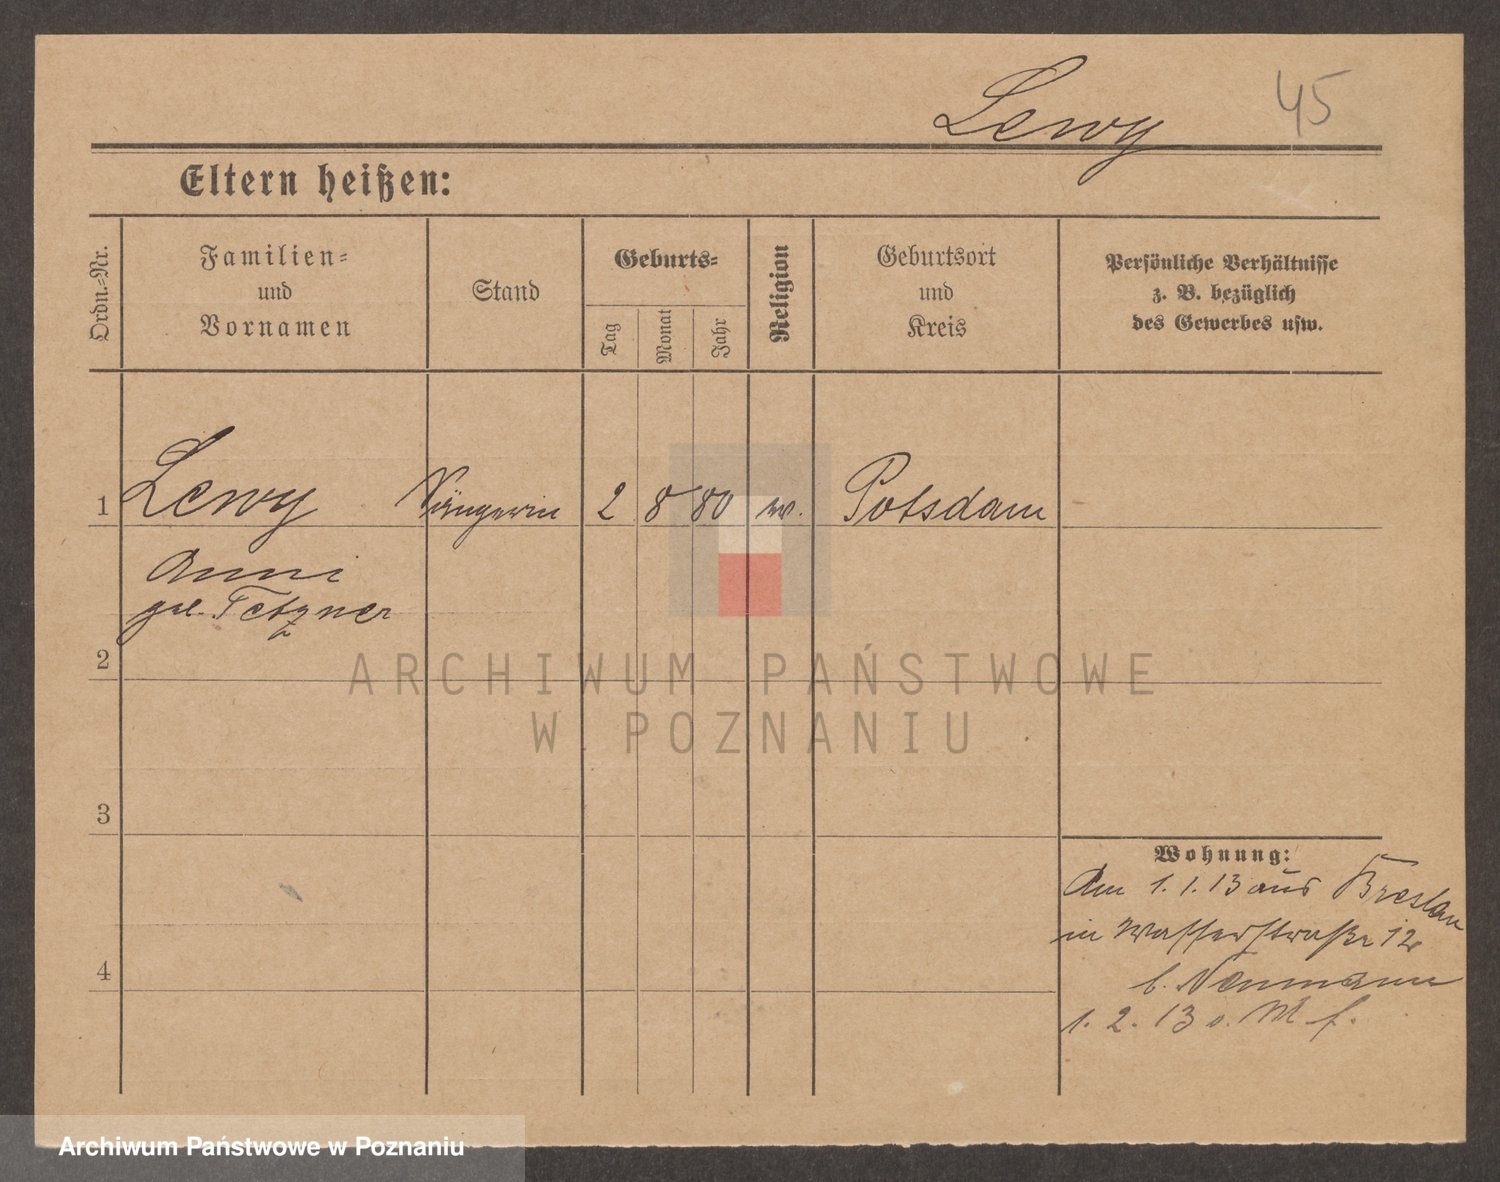 Lewy 45
Eltern heißen:
Ordn.-Nr.
Familien-
und
Vornamen
Stand
Geburts-
Tag
Monat
Jahr
Religion
Geburtsort
und
Kreis
Persönliche Verhältnisse
z. B. bezüglich
des Gewerbes usw.
1 Lewy Sängerin 2 8 80 Potsdam
Anni
Tetzner
2
ARCHIWUM PAŃSTWOWE
W POZNANIU
3
Wohnung:
Am 1.1.13 aus Breslau
in Wasserstraße 12
b. Neumann
4
1.2.13 o. M f.
Archiwum Państwowe w Poznaniu